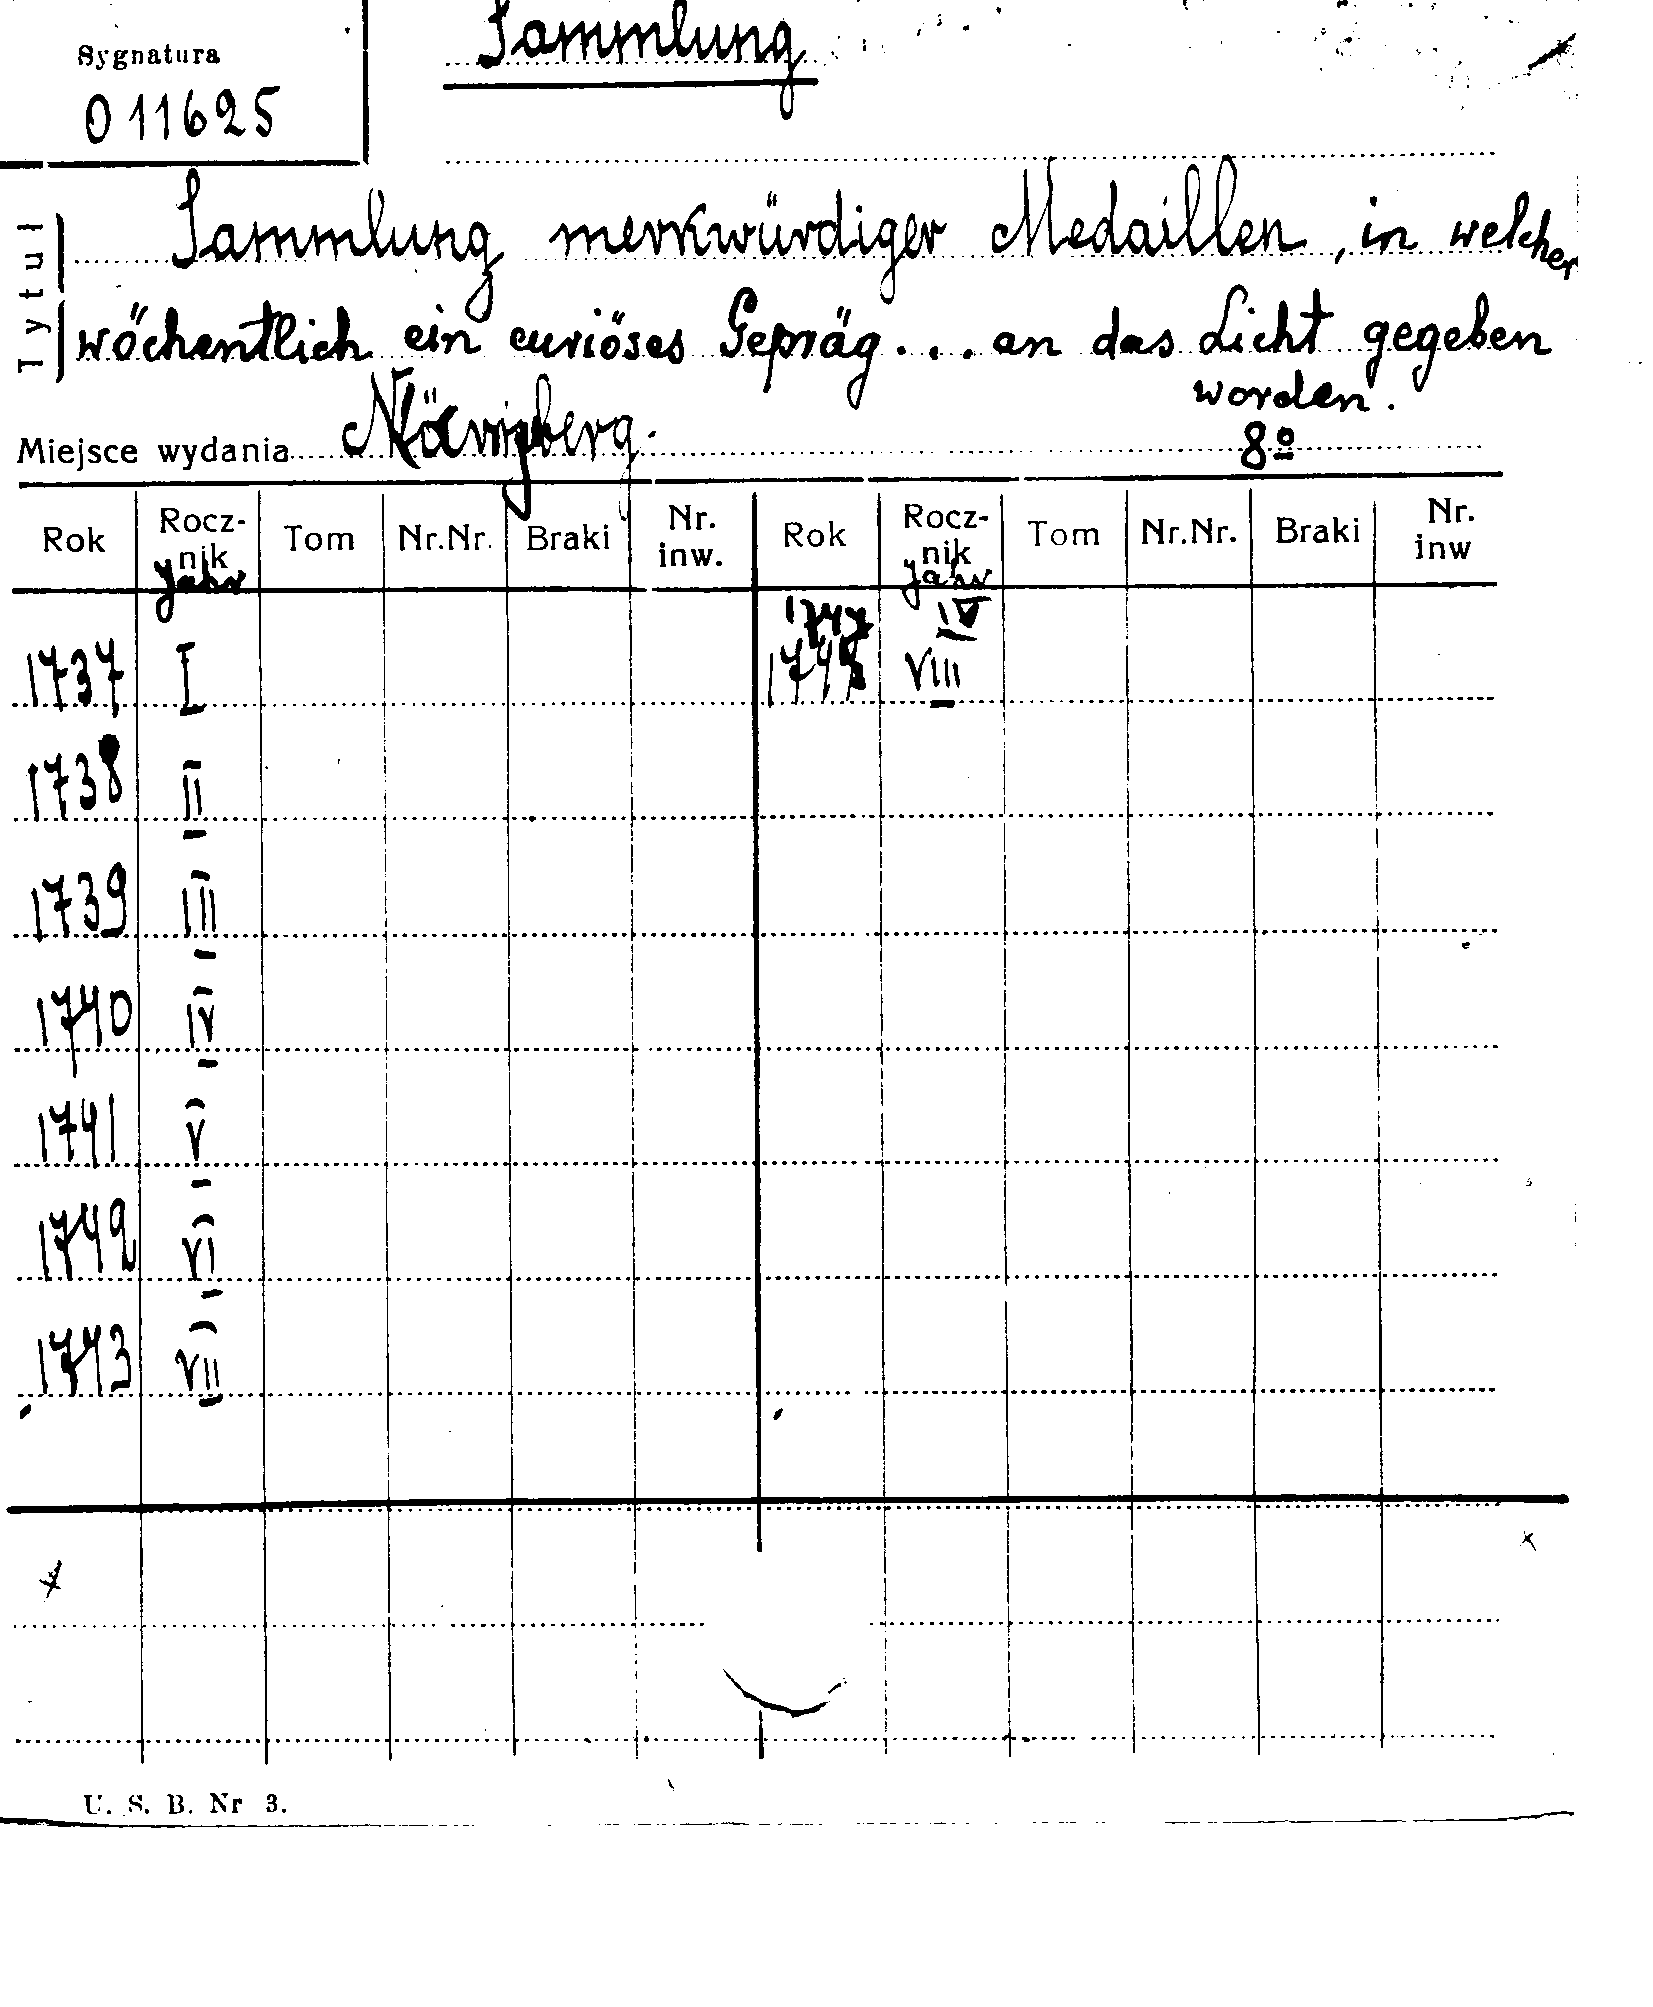 Sygnatura
011625
Sammlung
Tytuł
Sammlung merkwürdiger Medaillen, in welcher
wöchentlich ein curiöses Gepräg... an das Licht gegeben
worden.
Miejsce wydania Nürnberg.
8º
Rok Rocz- Tom Nr.Nr. Braki Nr. Rok Rocz- Tom Nr.Nr. Braki Nr.
nik inw. nik inw
Jahr Jahr
1737 I VIII
1738 II
1739 III
1740 IV
1741 V
1742 VI
1743 VII
U. S. B. Nr 3.